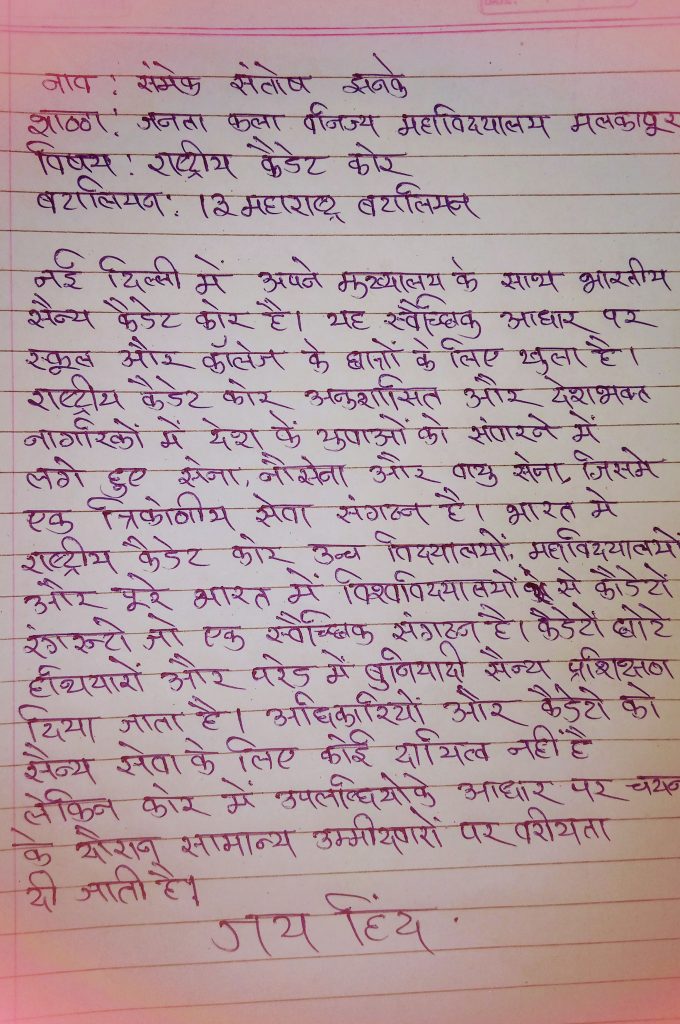 नाव : संमेक संतोष इनके
शाळा: जनता कला वनिज्य महाविदयालय मलकापूर
विषय : राष्ट्रीय कैडेट कोर
बटालियन: 13 महाराष्ट्र बटालियन
नई दिल्ली में अपने मुख्यालय के साथ भारतीय
सैन्य कैडेट कोर है। यह स्वैच्छिक आधार पर
स्कूल और कॉलेज के छात्रों के लिए खुला है।
राष्ट्रीय कैडेट कोर अनुशासित और देशभक्त
नागरिकों में देश के युवाओं को संवारने में
लगे हुए सेना, नौसेना और वायु सेना, जिसमे
एक त्रिकोणीय सेवा संगठन है। भारत मे
राष्ट्रीय कैडेट कोर उच्च विदयालयों, महाविदयालयों
और पूरे भारत में विश्वविदयालयों से कैडेटों
रंगरुटो जो एक स्वैच्छिक संगठन है। कैडेटों छोटे
हथियारों और परेड में बुनियादी सैन्य प्रशिक्षण
दिया जाता है। अधिकारियों और कैडेटो को
सैन्य सेवा के लिए कोई दायित्व नहीं है
लेकिन कोर में उपलब्धियोके आधार पर चयन
के दौरान सामान्य उम्मीदवारों पर वरीयता
दी जाती है।
जय हिंद .